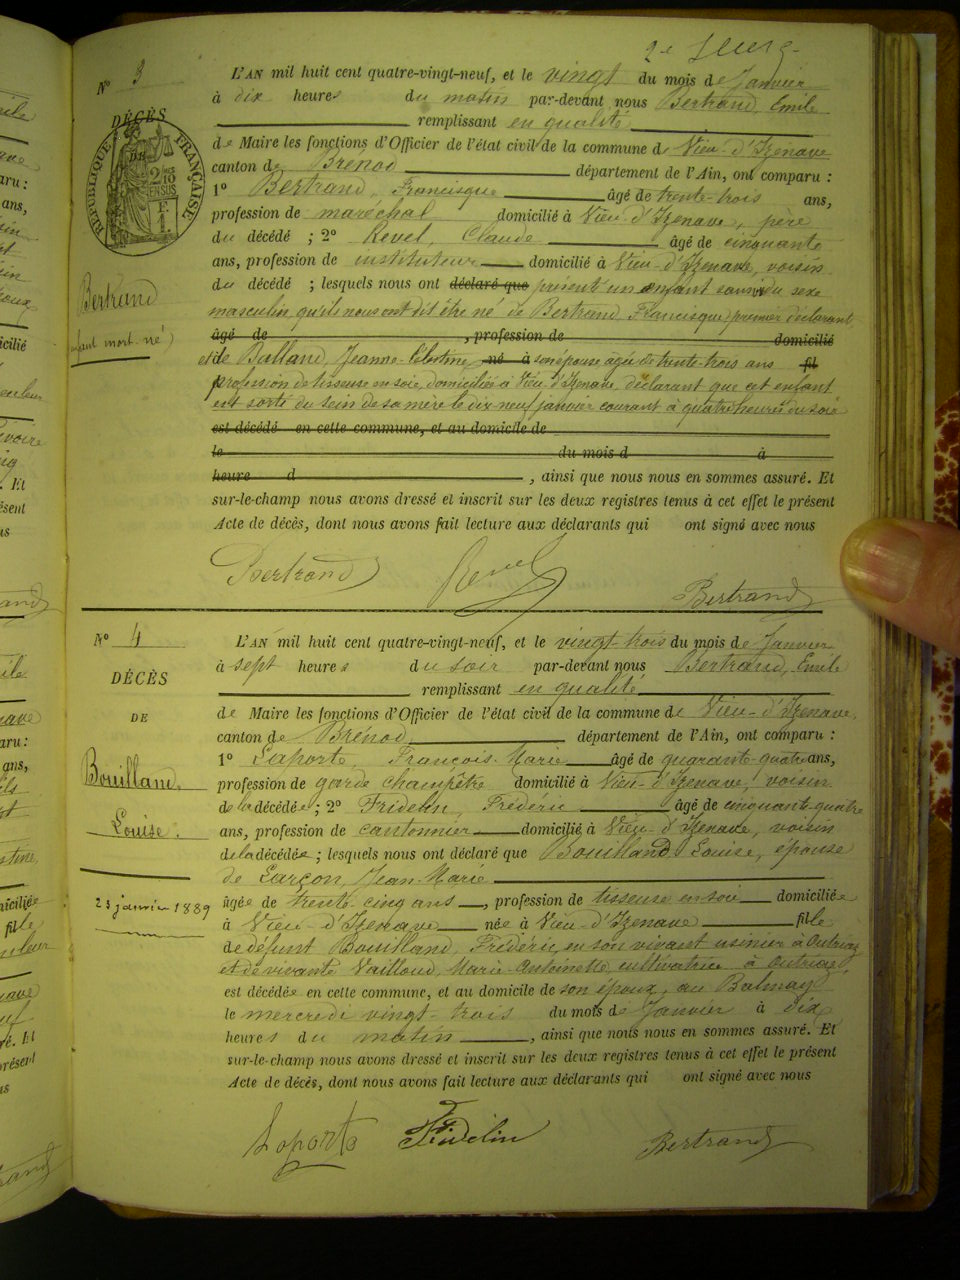 2e
N° 3
DÉCÈS
DE
RÉPUBLIQUE FRANÇAISE
2 10
EN SUS
F.
1.
Bertrand
enfant mort-né)
L'AN mil huit cent quatre-vingt-neuf, et le vingt du mois de Janvier
à dix heures du matin par-devant nous Bertrand, Emile
remplissant en qualité
de Maire les fonctions d'Officier de l'état civil de la commune de Vieu-d'Izenave
canton de Brénod département de l'Ain, ont comparu :
1° Bertrand, Francisque âgé de trente-trois ans,
profession de maréchal domicilié à Vieu-d'Izenave, père
du décédé ; 2° Revel, Claude âgé de cinquante
ans, profession de instituteur domicilié à Vieu-d'Izenave, voisin
du décédé ; lesquels nous ont déclaré que présenté un enfant sans vie du sexe
masculin qu'ils nous ont dit être né de Bertrand, Francisque, premier déclarant
âgé de , profession de domicilié
et de Balland, Jeanne-Célestine, né à son épouse agée de trente-trois ans fil
profession de tisseuse en soie, domiciliée à Vieu-d'Izenave, déclarant que cet enfant
est sorti du sein de sa mère le dix-neuf janvier courant à quatre heures du soir
est décédé en cette commune, et au domicile de
le du mois d à
heure d , ainsi que nous nous en sommes assuré. Et
sur-le-champ nous avons dressé et inscrit sur les deux registres tenus à cet effet le présent
Acte de décès, dont nous avons fait lecture aux déclarants qui ont signé avec nous
Bertrand Revel Bertrand
N° 4
DÉCÈS
DE
Bouilland
Louise.
23 janvier 1889
L'AN mil huit cent quatre-vingt-neuf, et le vingt-trois du mois de Janvier
à sept heures du soir par-devant nous Bertrand, Emile
remplissant en qualité
de Maire les fonctions d'Officier de l'état civil de la commune de Vieu-d'Izenave
canton de Brénod département de l'Ain, ont comparu :
1° Laporte, François-Marie âgé de quarante-quatre ans,
profession de garde champêtre domicilié à Vieu-d'Izenave, voisin
de la décédée ; 2° Fridelin, Frédéric âgé de cinquante-quatre
ans, profession de cantonnier domicilié à Vieu-d'Izenave, voisin
de la décédée ; lesquels nous ont déclaré que Bouilland Louise, épouse
de Garçon, Jean-Marie
âgée de trente-cinq ans , profession de tisseuse en soie domiciliée
à Vieu-d'Izenave née à Vieu-d'Izenave fille
de défunt Bouilland, Frédéric en son vivant usinier à Outriaz
et de vivante Vailloud, Marie-Antoinette, cultivatrice à Outriaz,
est décédée en cette commune, et au domicile de son époux, au Balmay
le mercredi vingt-trois du mois de Janvier à dix
heures du matin , ainsi que nous nous en sommes assuré. Et
sur-le-champ nous avons dressé et inscrit sur les deux registres tenus à cet effet le présent
Acte de décès, dont nous avons fait lecture aux déclarants qui ont signé avec nous
Laporte Fridelin Bertrand